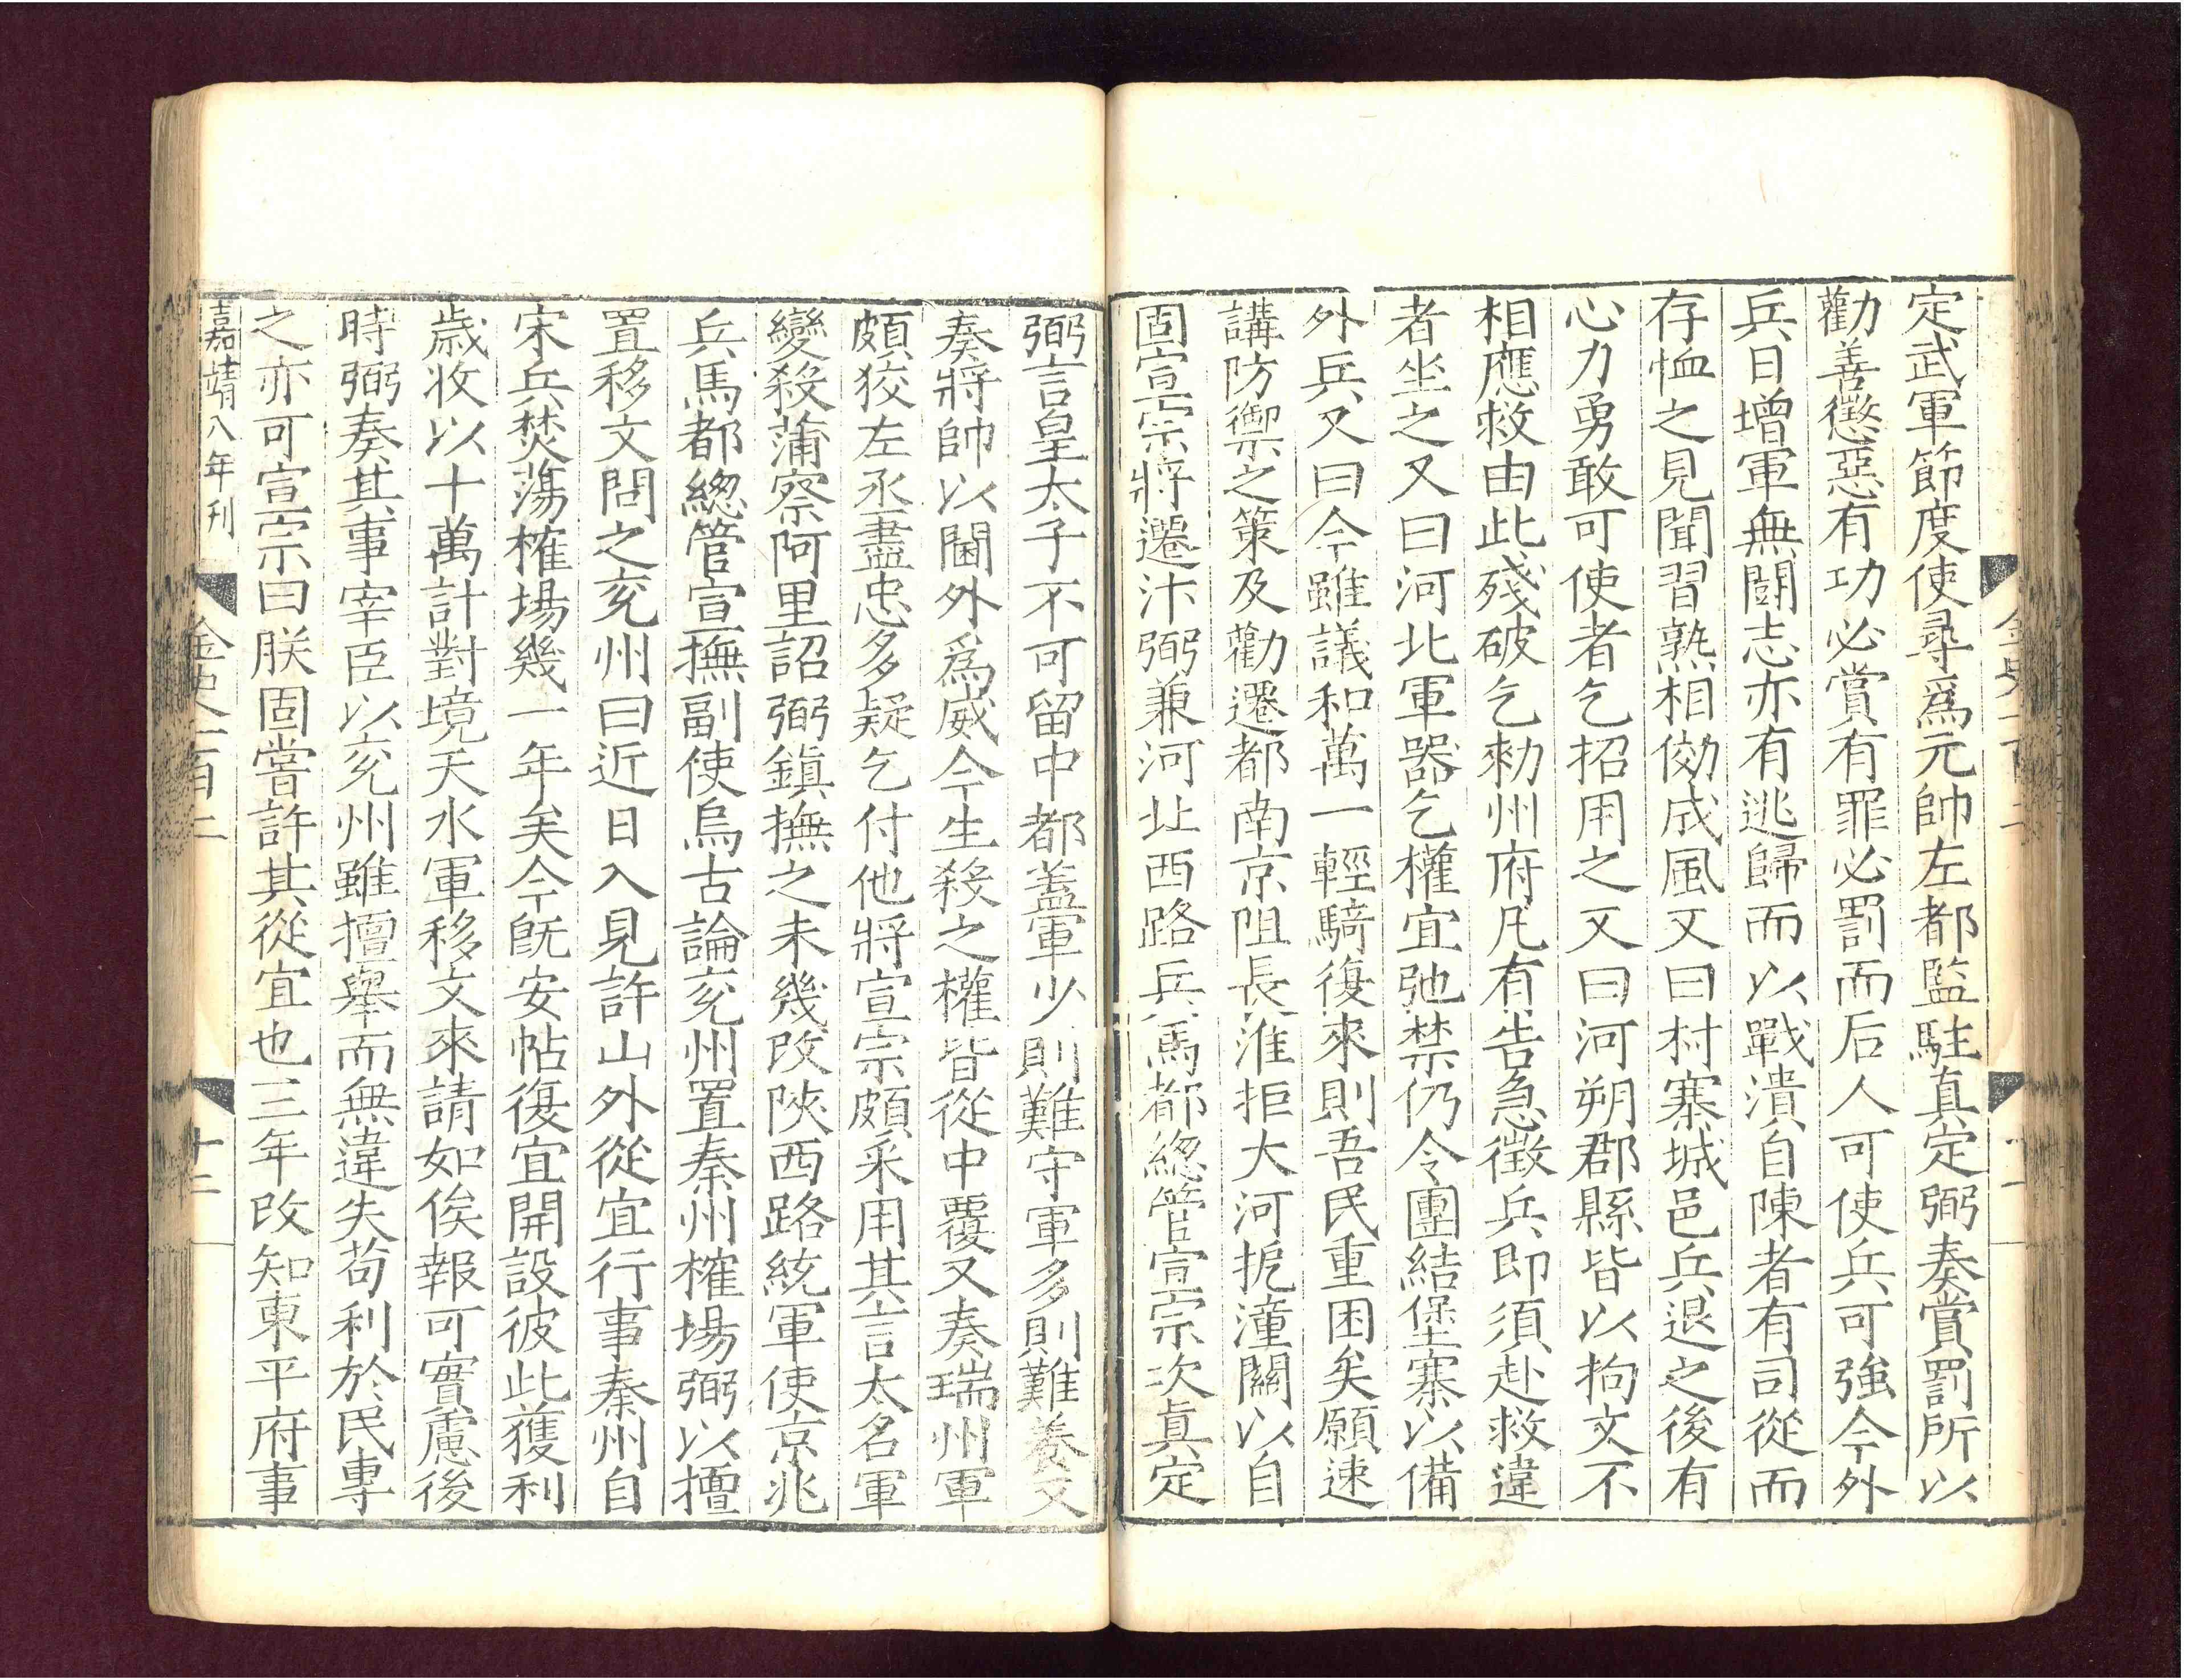 定武軍節度使尋爲元帥左都監駐真定弼奏賞罰所以
勸善懲惡有功必賞有罪必罰而后人可使兵可強今外
兵日增軍無鬪志亦有逃歸而以戰潰自陳者有司從而
存恤之見聞習熟相傚成風又曰村寨城邑兵退之後有
心力勇敢可使者乞招用之又曰河朔郡縣皆以拘文不
相應救由此殘破乞勑州府凡有告急徵兵即須赴救違
者坐之又曰河北軍器乞權宜弛禁仍令團結堡寨以備
外兵又曰今雖議和萬一輕騎復來則吾民重困矣願速
講防禦之策及勸遷都南京阻長淮拒大河扼潼關以自
固宣宗將遷汴弼兼河北西路兵馬都緫管宣宗次真定
弼言皇太子不可留中都蓋軍少則難守軍多則難養又
奏將帥以閫外爲威今生殺之權皆從中覆又奏瑞州軍
頗狡左丞盡忠多疑乞付他將宣宗頗采用其言太名軍
變殺蒲察阿里詔弼鎭撫之未幾改陝西路統軍使京兆
兵馬都緫管宣撫副使烏古論兖州置秦州榷場弼以擅
置移文問之兖州曰近日入見許山外從宜行事秦州自
宋兵焚蕩榷場幾一年矣今旣安帖復宜開設彼此獲利
歲收以十萬計對境天水軍移文來請如俟報可實慮後
時弼奏其事宰臣以兖州雖擅舉而無違失苟利於民專
之亦可宣宗曰朕固嘗許其從宜也三年改知東平府事
嘉靖八年刊
金史一百二
十二